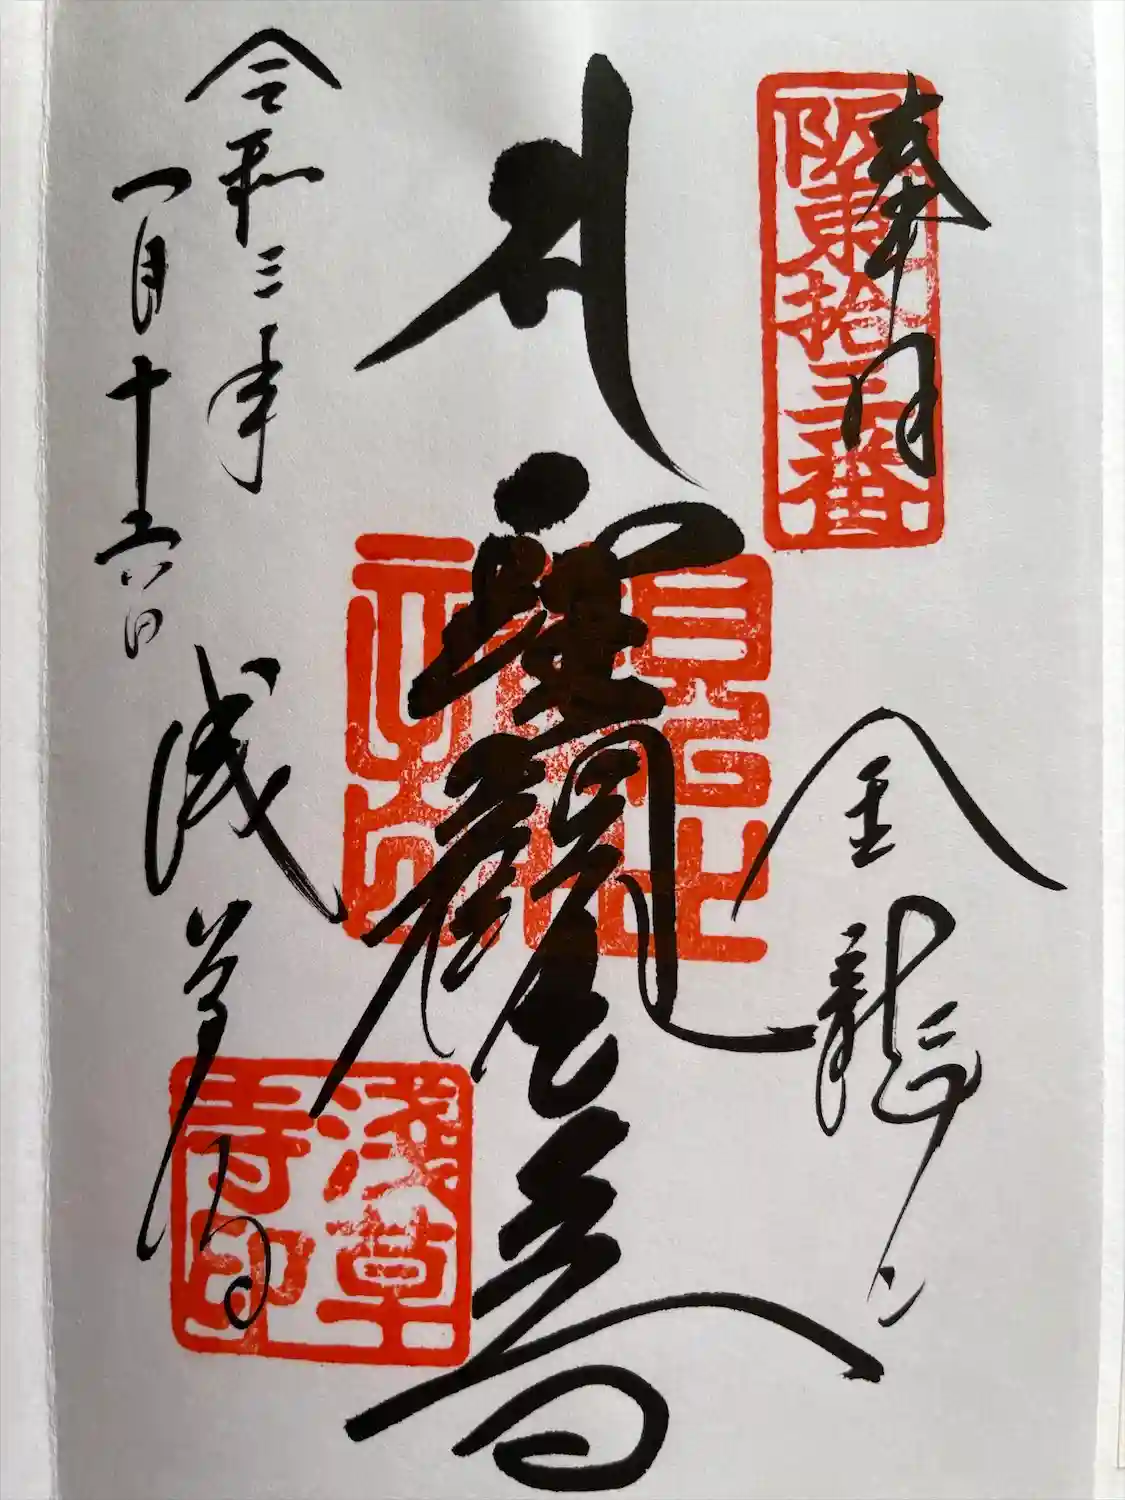 奉拝
阪東拾三番
金龍山
聖観世音
令和三年
一月十六日
浅草寺
淺草寺印